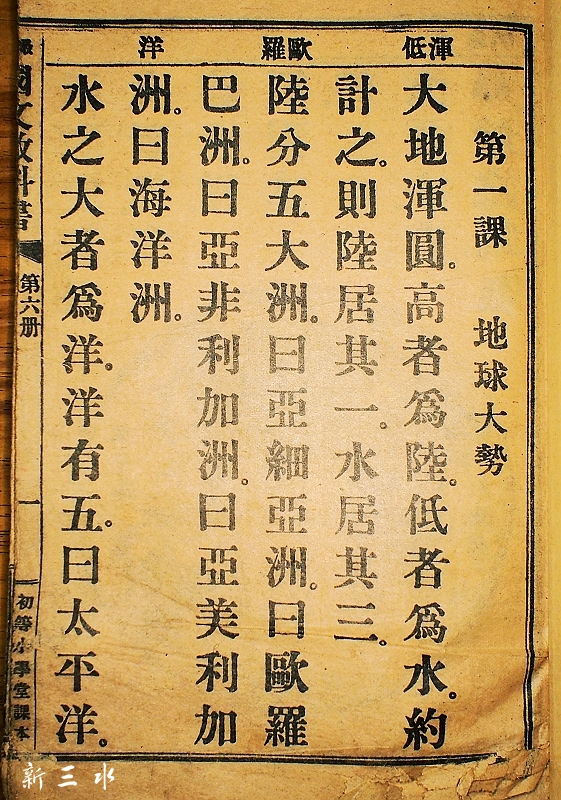 渾低
歐羅
洋
第一課　地球大勢
大地渾圓。高者爲陸。低者爲水。約
計之。則陸居其一。水居其三。
陸分五大洲。曰亞細亞洲。曰歐羅
巴洲。曰亞非利加洲。曰亞美利加
洲。曰海洋洲。
水之大者爲洋。洋有五。曰太平洋。
國文教科書
第六册
一
初等小學堂課本
新三水